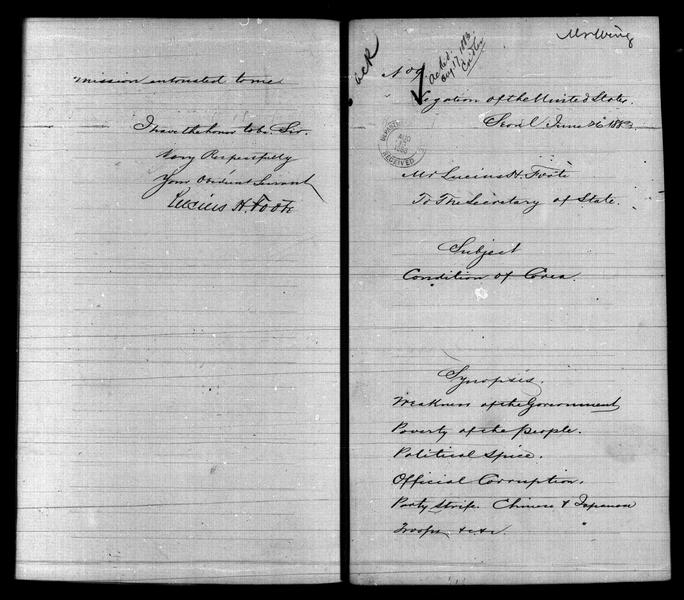 mission entrusted to me
I have the honor to be Sir.
Very Respectfully
Your Obedient Servant
Lucius H. Foote
Mr Wing
ack
No 9
Ackd.
Aug 17, 1883
Legation of the United States.
Seoul June 26 1883.
RECEIVED
Mr Lucius H. Foote
To The Secretary of State.
Subject
Condition of Corea.
Synopsis.
Weakness of the Government
Poverty of the people.
Political Spice.
Official Corruption.
Party strife. Chinese & Japanese
Troops &c &c